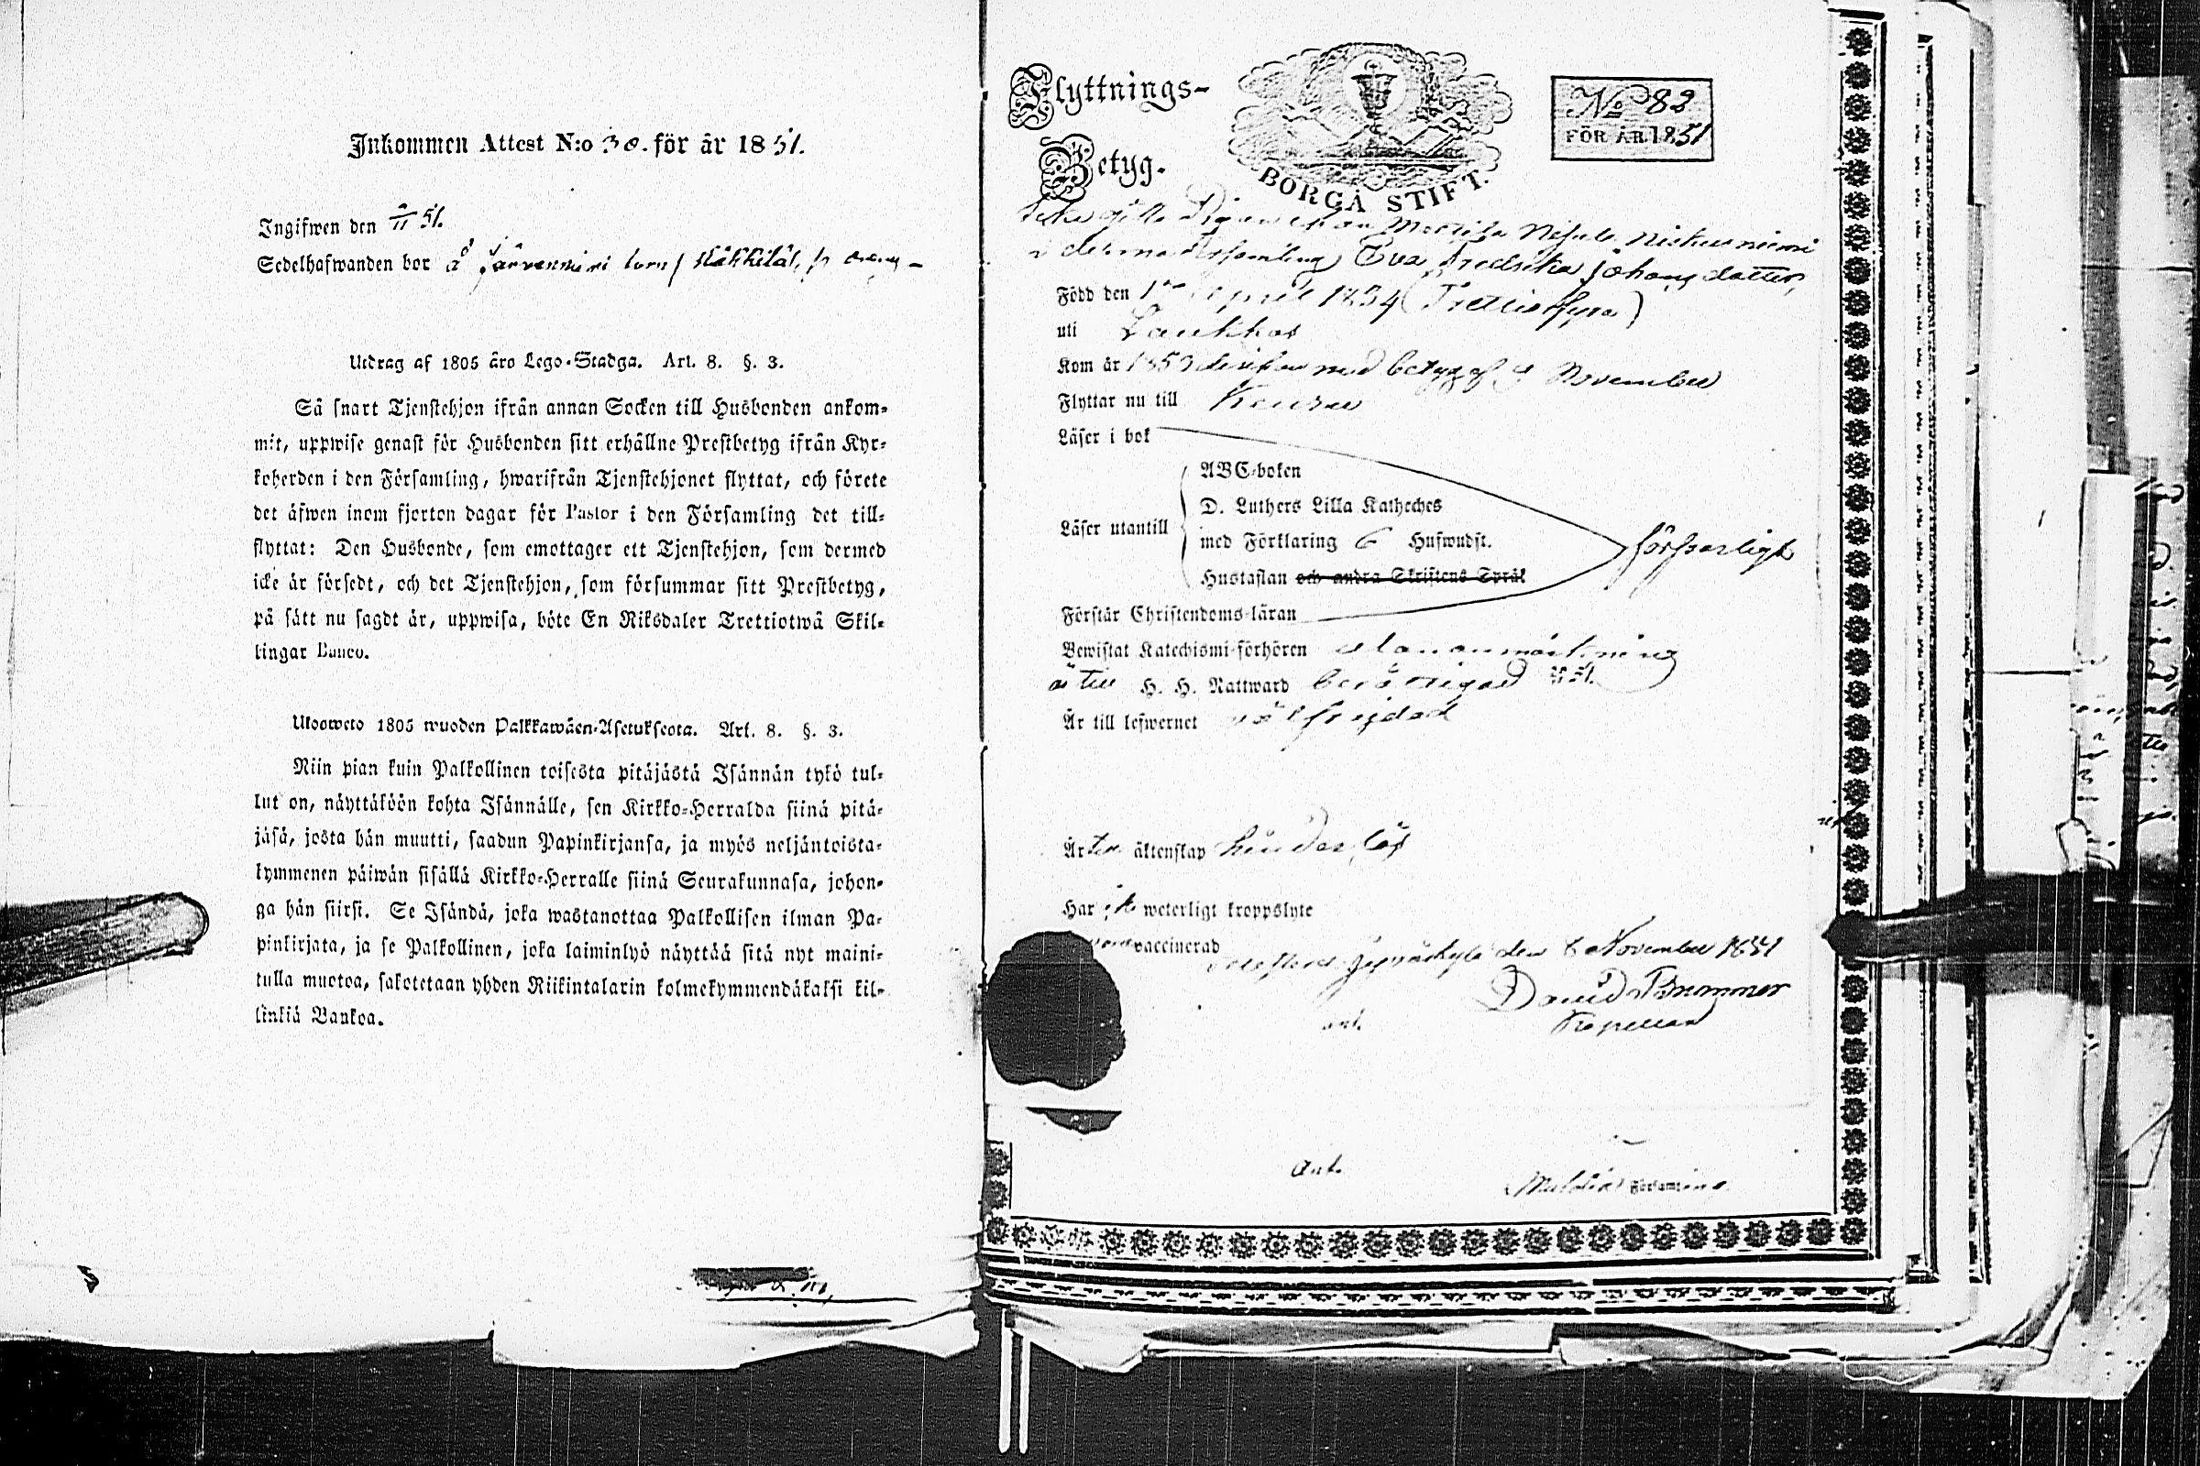 Inkommen Attest N:o 30. för år 1851.
Ingifwen den 9/11 51.
Sedelhafwanden bor å Järvenniemi torp
Utdrag af 1805 års Lego-Stadga. Art. 8. §. 3.
Så snart Tjenstehjon ifrån annan Socken till Husbonden ankom-
mit, uppwise genast för Husbonden sitt erhållne Prestbetyg ifrån Kyr-
koherden i den Församling, hwarifrån Tjenstehjonet flyttat, och förete
det äfwen inom fjorton dagar för Pastor i den Församling det till-
flyttat: Den Husbonde, som emottager ett Tjenstehjon, som dermed
icke är försedt, och det Tjenstehjon, som försummar sitt Prestbetyg,
på sätt nu sagdt är, uppwisa, böte En Riksdaler Trettiotwå Skil-
lingar Banco.
Ulosweto 1805 wuoden Palkkawäen-Asetuksesta. Art. 8. §. 3.
Niin pian kuin Palkollinen toisesta pitäjästä Isännän tykö tul-
lut on, näyttäköön kohta Isännälle, sen Kirkko-Herralda siinä pitä-
jäsä, josta hän muutti, saadun Papinkirjansa, ja myös neljäntoista-
kymmenen päiwän sisällä Kirkko-Herralle siinä Seurakunnasa, johon-
ga hän siirsi. Se Isändä, joka wastanottaa Palkollisen ilman Pa-
pinkirjata, ja se Palkollinen, joka laiminlyö näyttää sitä nyt maini-
tulla muotoa, sakotetaan yhden Riikintalarin kolmekymmendäkaksi kil-
linkiä Bankoa.
Flyttnings-
Betyg.
BORGÅ STIFT.
No 82
FÖR ÅR 1851
Pigan ifrån Niskaniemi
i detsamma församling Eva Fredrika Johansdotter,
Född den 1 April 1834 (Trettiofyra)
uti Laukkas
Kom år 1850 med betyg af November
Flyttar nu till Keuru
Läser i bok
ABC-boken
D. Luthers Lilla Katheches
Läser utantill
med Förklaring 6 Hufwudst.
försvarligt
Hustaflan och andra Skriftens Språk
Förstår Christendoms-läran
Bewistat Katechismi-förhören utan anmärkning
är till H. H. Nattward berättigad 51.
Är till lefwernet välfrejdad
Är till äktenskap hinderlös
Har ej weterligt kroppslyte
vaccinerad
Jyväskylä den 6 November 1851
David Brummer
Kapellan
Ant.
Församling